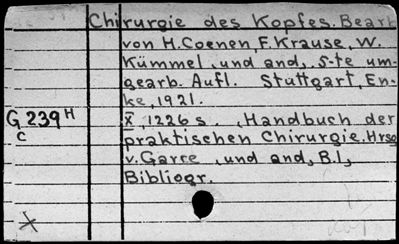 Chirurgie des Kopfes. Bearb
von H. Coenen, F. Krause, W.
Kümmel, und and, 5-te um-
gearb. Aufl. Stuttgart, En-
ke, 1921.
G 239 H X, 1226 s. , Handbuch der
C praktischen Chirurgie. Hrsg
v. Garre, und and, B.1,
Bibliogr.